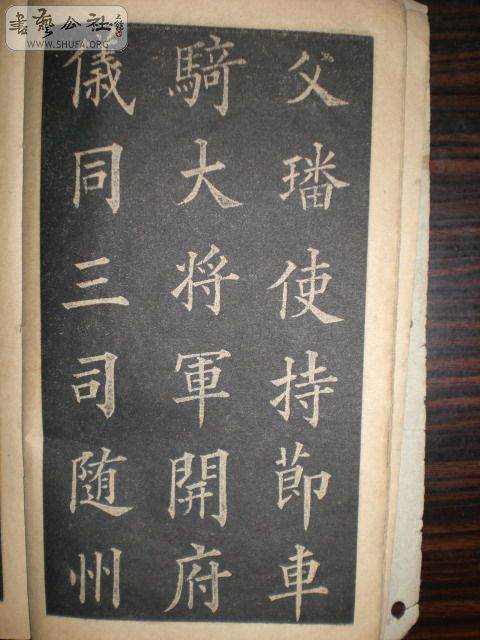 父璠使持節車
騎大将軍開府
儀同三司随州
書藝公社
WWW.SHUFA.ORG